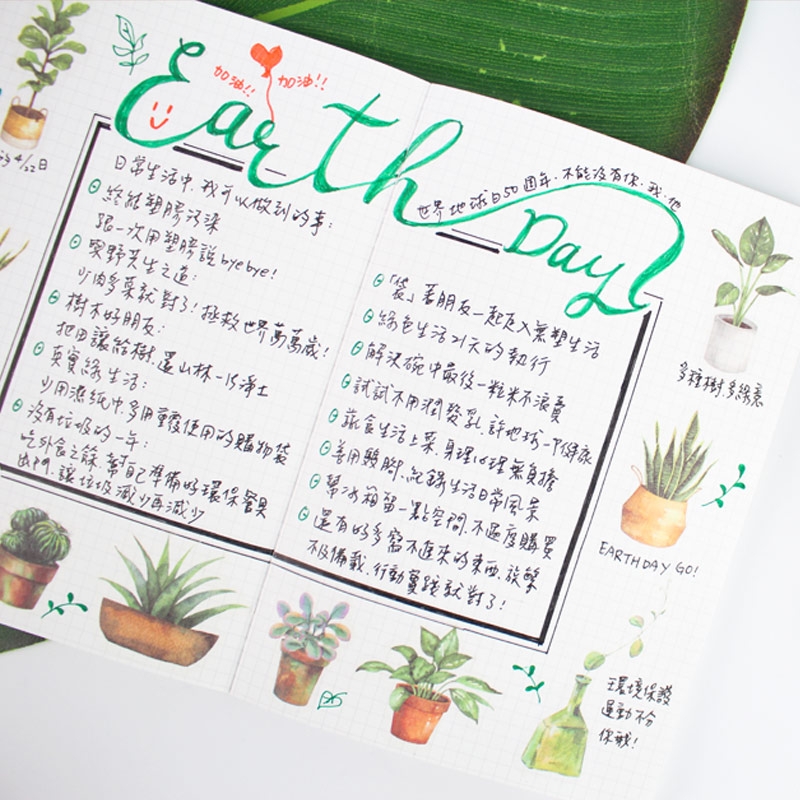 Earth Day
加油!!
加油!!
4/22日
世界地球日50週年,不能沒有你、我、他
日常生活中,我可以做到的事:
終結塑膠污染
跟一次用塑膠說byebye!
與野共生之道:
少肉多菜就對了!拯救世界萬萬歲!
樹木好朋友:
把田讓給樹,還山林一片淨土
真實綠生活:
少用濕紙巾,多用重覆使用的購物袋
沒有垃圾的一年:
吃外食之餘,幫自己準備好環保餐具
出門,讓垃圾減少再減少
「袋」著朋友一起走入無塑生活
綠色生活21天的執行
解決碗中最後一粒米不浪費
試試不用潤髮乳,許地球一下健康
蔬食生活上菜,身理心理無負擔
善用雙腳,紀錄生活日常風景
幫冰箱留一點空間,不過度購買
還有好多寫不進來的東西,族繁
不及備載,行動實踐就對了!
多種樹,多綠意
EARTH DAY GO!
環境保護
運動不分
你我!